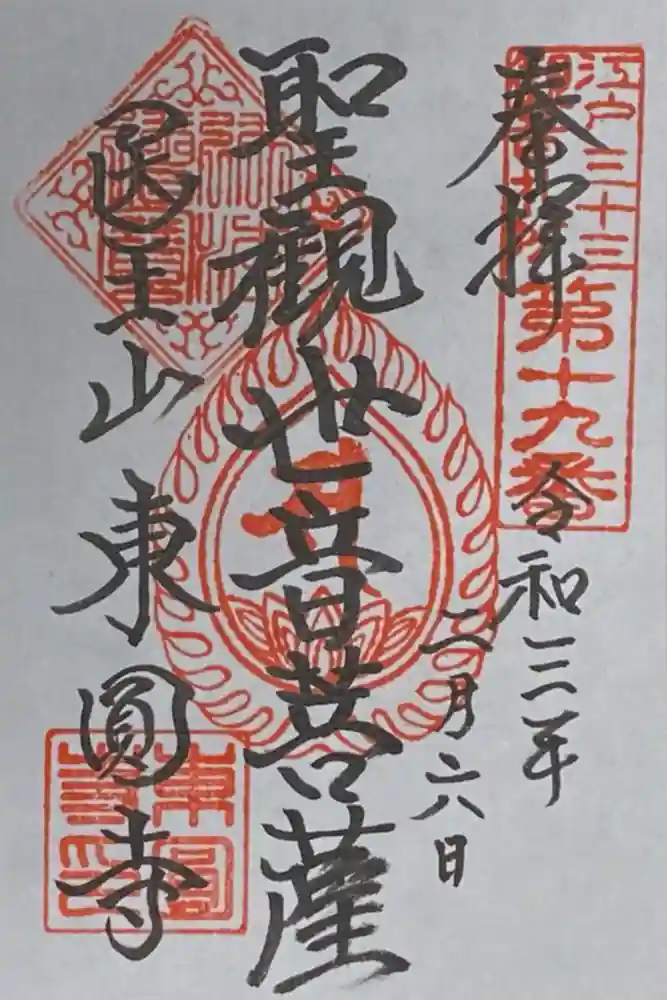 奉拝
江戸三十三
第十九番
令和三年
二月六日
聖観世音菩薩
医王山 東圓寺